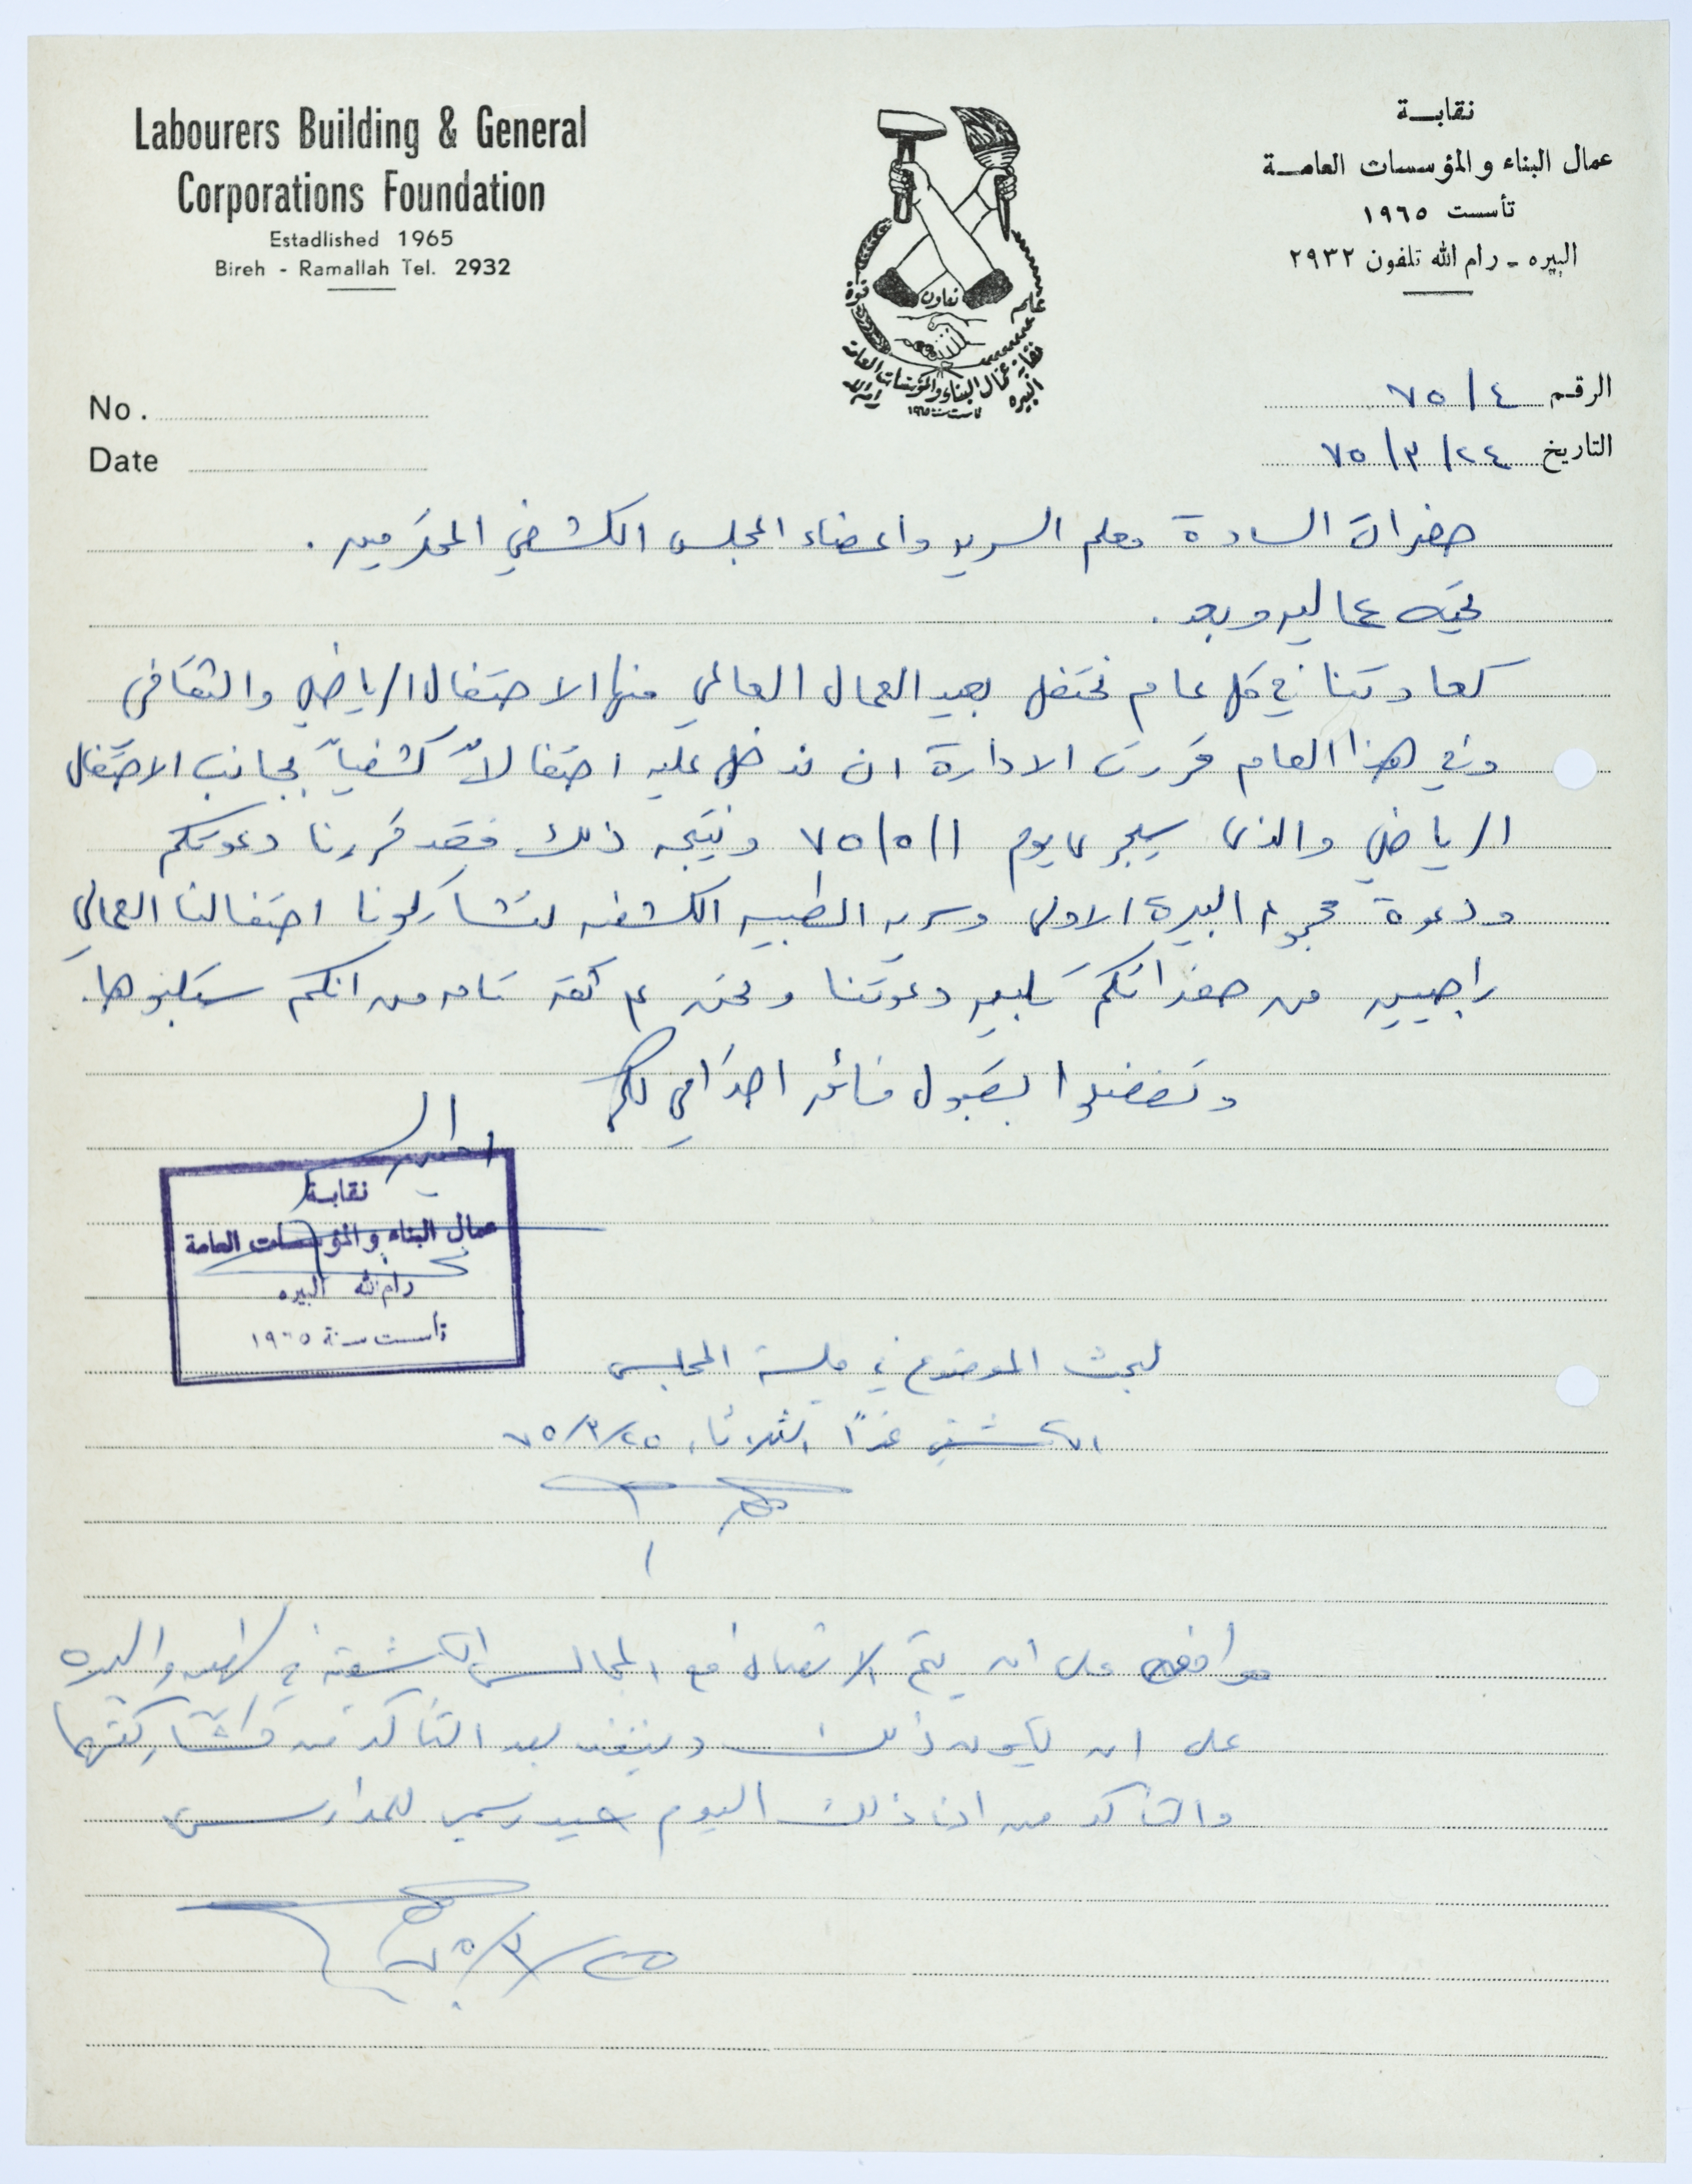 Labourers Building & General
Corporations Foundation
Estadlished 1965
Bireh - Ramallah Tel. 2932
نقابة
عمال البناء والمؤسسات العامة
تأسست ١٩٦٥
البيره - رام الله تلفون ٢٩٣٢
قوة
تعاون
علم
نقابة عمال البناء والمؤسسات العامة
البيره رام الله
تأسست سنة ١٩٦٥
No.
Date
الرقم ٧٥/٤
التاريخ ٧٥/٣/٢٤
حضرات السادة معلم السريه واعضاء المجلس الكشفي المحترمين .
تحيه عماليه وبعد .
كعادتنا في كل عام نحتفل بعيد العمال العالمي منها الاحتفال الرياضي والثقافي
وفي هذا العام قررت الادارة ان ندخل عليه احتفالاً كشفياً بجانب الاحتفال
الرياضي والذي سيجري يوم ٧٥/٥/١ ونتيجه ذلك فقد قررنا دعوتكم
ودعوة مجموعة البيرة الاولى وسريه الطيبه الكشفيه لتشاركونا احتفالنا العمالي
راجيين من حضراتكم تلبيه دعوتنا ونحن على ثقه تامه من انكم ستلبوها.
وتفضلوا بقبول فائق احترامي لكم
نقابة
عمال البناء والمؤسسات العامة
رام الله البيره
تأسست سنة ١٩٦٥
لبحث الموضوع في جلسة المجلس
الكشفي غداً الثلاثاء ٧٥/٣/٢٥
موافقه على ان يتم الاتصال مع المجالس الكشفية في والبيره
على ان يكون ذلك وينفذ بعد التأكد من مشاركتهما
والتأكد من ان ذلك اليوم عيد رسمي للمدارس
٧٥/٣/٢٥